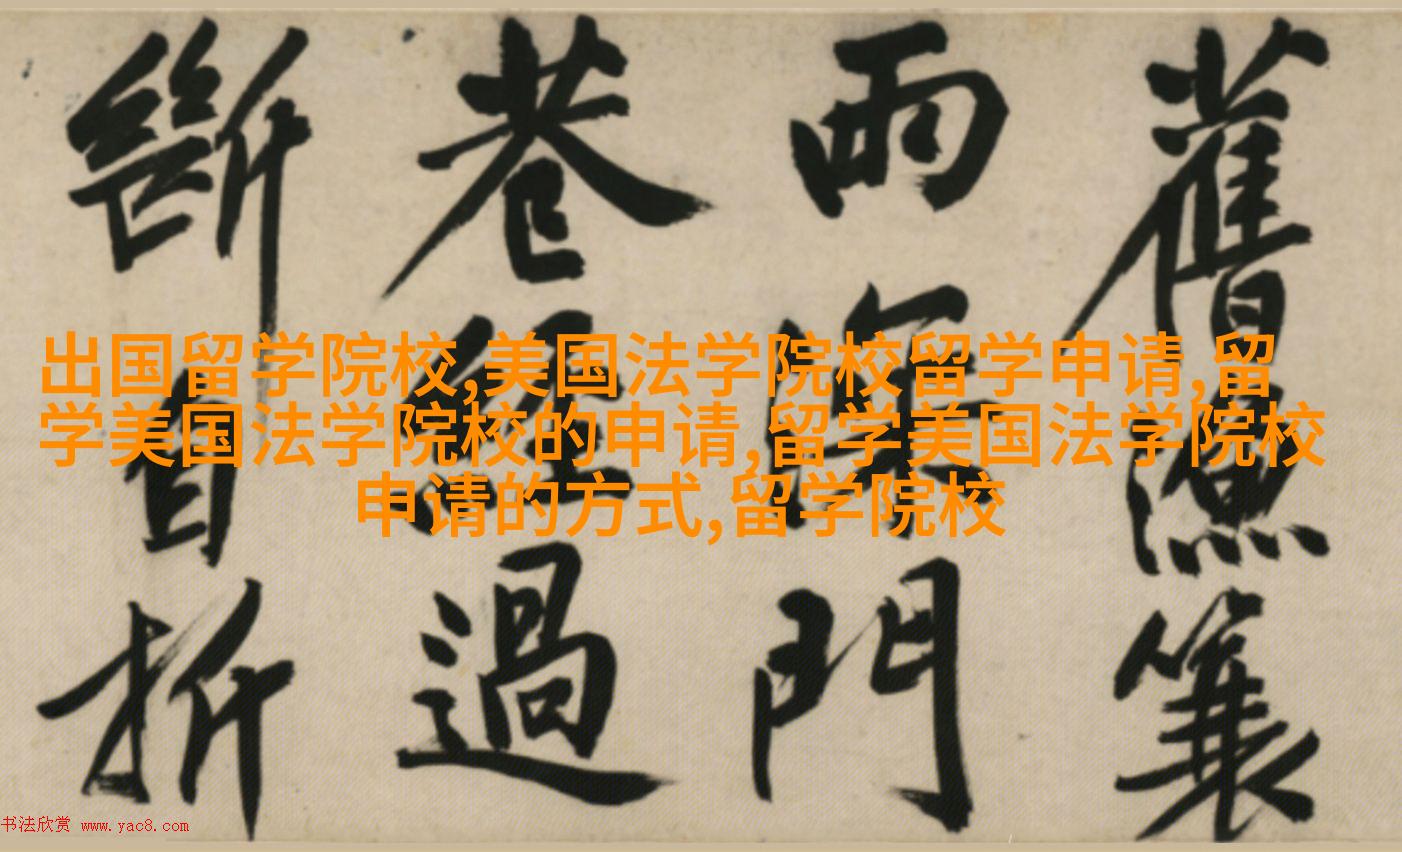 舊漁蓑
雨深門
巷經過
斷自折
出国留学院校,美国法学院校留学申请,留
学美国法学院校的申请,留学美国法学院校
申请的方式,留学院校
书法欣赏 www.yac8.com